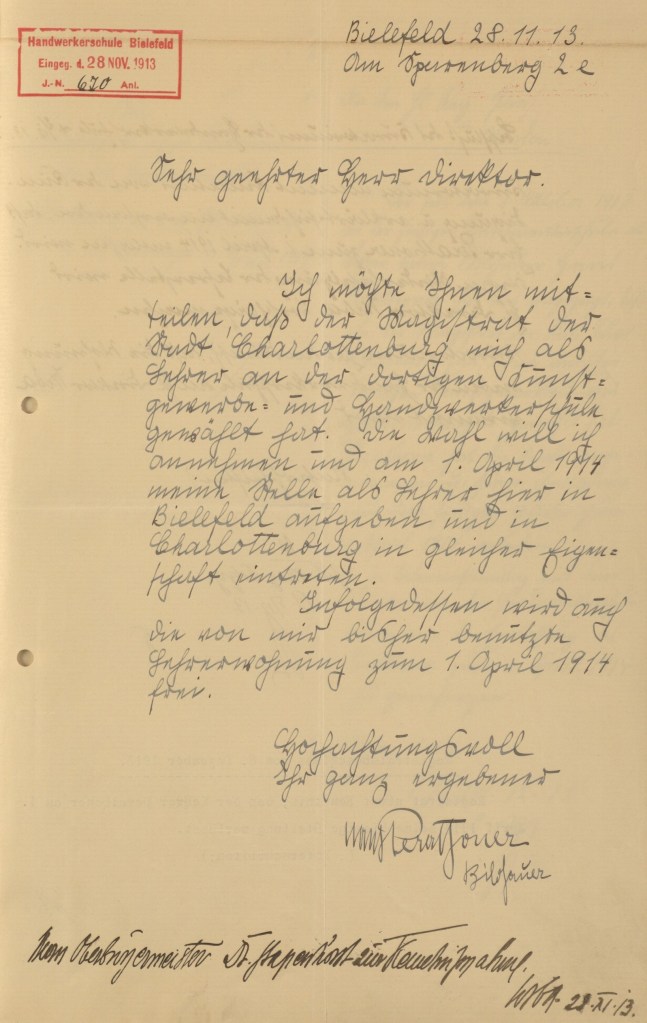 Handwerkerschule Bielefeld
Eingeg. d. 28 NOV. 1913
J.-N. 670 Anl.
Bielefeld 28.11.13.
Am Sparenberg 2 e
Sehr geehrter Herr Direktor.
Ich möchte Ihnen mit=
teilen, daß der Magistrat der
Stadt Charlottenburg mich als
Lehrer an der dortigen Kunst=
gewerbe= und Handwerkerschule
gewählt hat. Die Wahl will ich
annehmen und am 1. April 1914
meine Stelle als Lehrer hier in
Bielefeld aufgeben und in
Charlottenburg in gleicher Eigen=
schaft eintreten.
Infolgedessen wird auch
die von mir bisher benutzte
Lehrerwohnung zum 1. April 1914
frei.
Hochachtungsvoll
Ihr ganz ergebener
Hans Perathoner
Bildhauer
Herrn Oberbürgermeister Dr. Stapenhorst zur Kenntnisnahme.
28.XI.13.